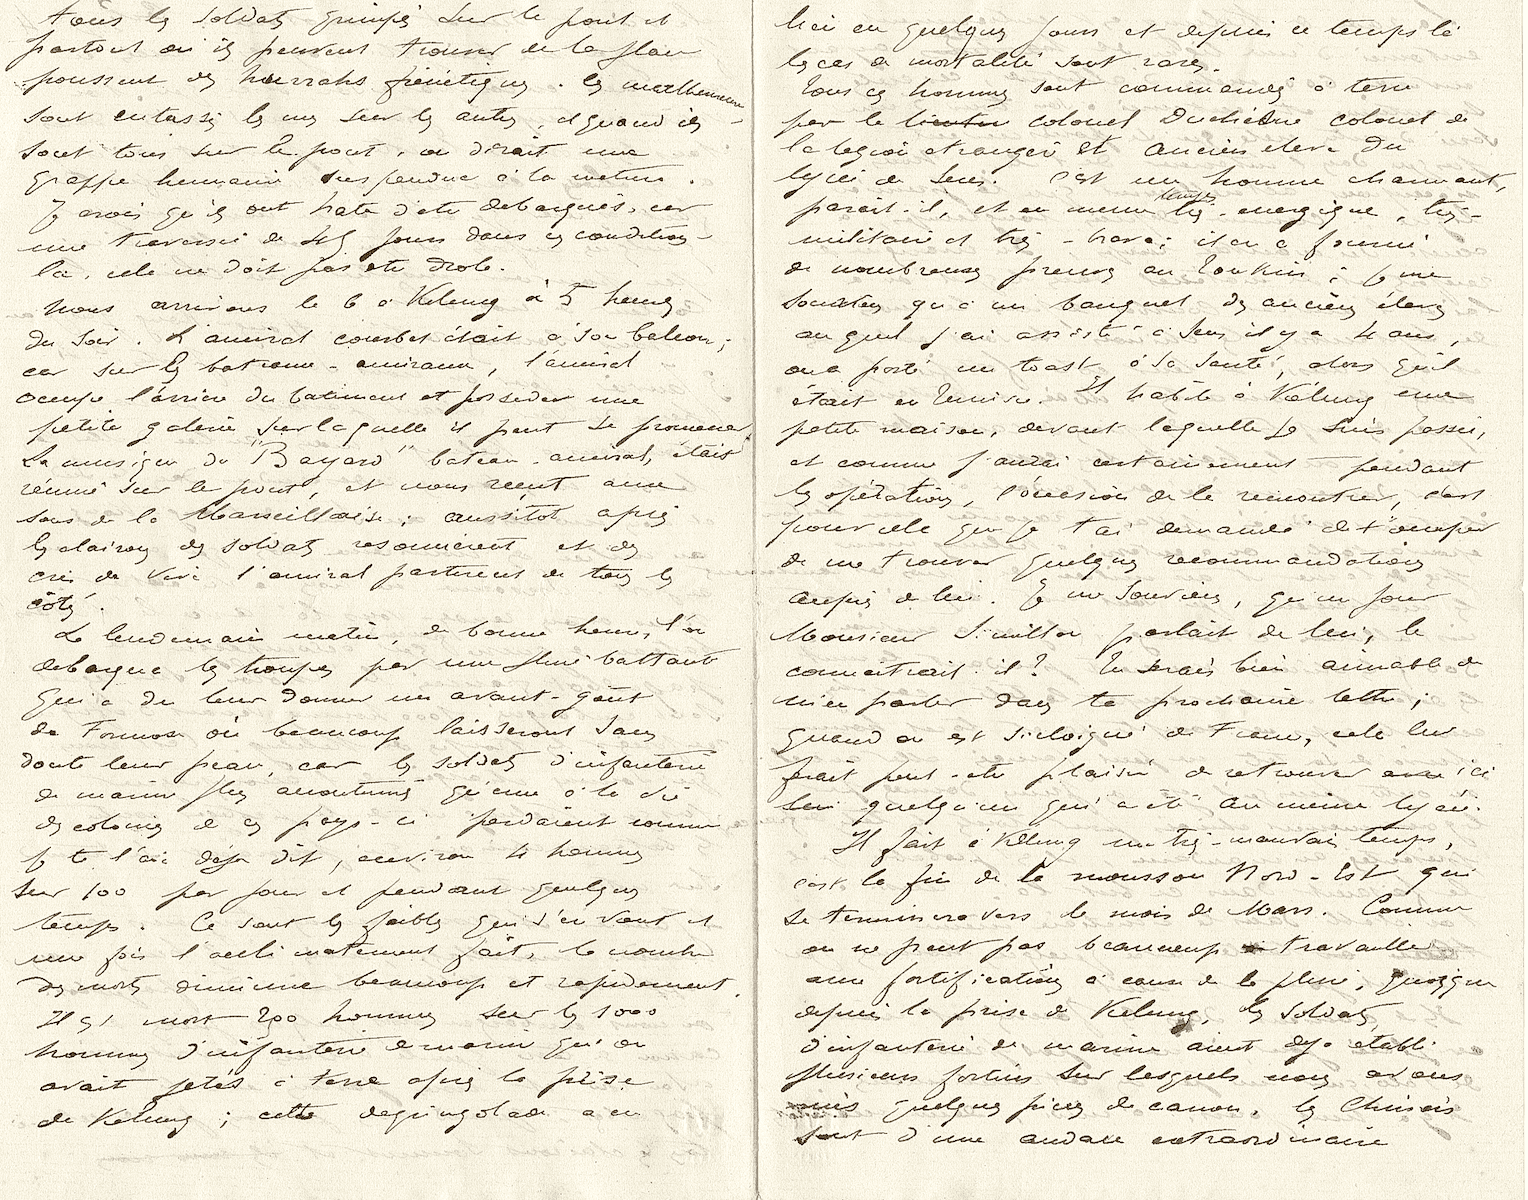 tous les soldats grimpés sur le pont et
partout où ils peuvent trouver de la place
poussent des hourrahs frénétiques. les malheureux
sont entassés les uns sur les autres, et quand ils
sont tous sur le pont, on dirait une
grappe humaine suspendue à la mature.
Je crois qu'ils ont hate d'etre debarqués, car
une traversée de 45 jours dans ces conditions-
la, cela ne doit pas etre drole.
Nous arrivons le 6 à Kelung à 5 heures
du soir. L'amiral courbet était à son balcon;
car sur les bateaux-amiraux, l'amiral
occupe l'arrière du batiment et possede une
petite galerie sur laquelle il peut se promener
La musique du "Bayard" bateau-amiral, était
réunie sur le pont, et nous recut aux
sons de la Marseillaise; aussitôt après
les clairons des soldats resonnèrent et des
cris de Vive l'amiral partirent de tous les
côtés.
Le lendemain matin, de bonne heure, l'on
debarque les troupes par une pluie battante
qui a du leur donner un avant-goût
de Formose où beaucoup laisseront sans
doute leur peau, car les soldats d'infanterie
de marine plus accoutumés qu'eux à la vie
des colonies et ces pays-ci perdaient comme
je te l'ai déja dit, environ 4 hommes
sur 100 par jour et pendant quelques
temps. Ce sont les faibles qui s'en vont et
une fois l'acclimatement fait, le nombre
des morts diminue beaucoup et rapidement.
Il est mort 200 hommes sur les 1000
hommes d'infanterie de marine qu'on
avait jetés à terre après la prise
de Kelung; cette degringolade a eu
lieu en quelques jours et depuis ce temps là
les cas de mortalité sont rares.
Tous ces hommes sont commandés à terre
par le colonel Duchesne colonel de
la legion etrangère et ancien eleve du
lycée de Sens. C'est un homme charmant,
parait-il, et en meme temps très-energique, très-
militaire et très-brave; il en a fourni
de nombreuses preuves au Tonkin; je me
souviens qu'à un banquet des anciens élèves
auquel j'ai assisté à Sens il y a 4 ans,
on a porté un toast à sa santé, alors qu'il
était en Tunisie. Il habite à Kélung une
petite maison, devant laquelle je suis passé,
et comme j'aurai certainement pendant
les opérations, l'occasion de le rencontrer, c'est
pour cela que je t'ai demandé de t'occuper
de me trouver quelques recommandations
auprès de lui. Je me souviens, qu'un jour
Monsieur parlait de lui, le
connaitrait-il? Tu serais bien aimable de
m'en parler dans ta prochaine lettre;
quand on est si éloigné de France, cela lui
ferait peut-etre plaisir de retrouver ici
quelqu'un qui a été au même lycée.
Il fait à Kelung un très-mauvais temps,
c'est la fin de la mousson Nord-Est qui
se terminera vers le mois de Mars. Comme
on ne peut pas beaucoup travailler
aux fortifications à cause de la pluie, quoique
depuis la prise de Kelung, les soldats
d'infanterie de marine aient deja établi
plusieurs fortins sur lesquels nous avons
mis quelques pièces de canon, les Chinois
sont d'une audace extraordinaire